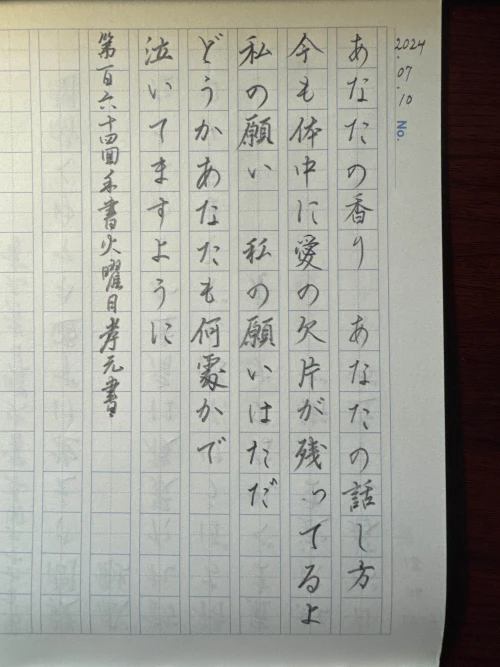 2024.07.10 No.
あなたの香り あなたの話し方
今も体中に愛の欠片が残ってるよ
私の願い 私の願いはただ
どうかあなたも何處かで
泣いてますように
第百六十四回手書火曜日孝元書